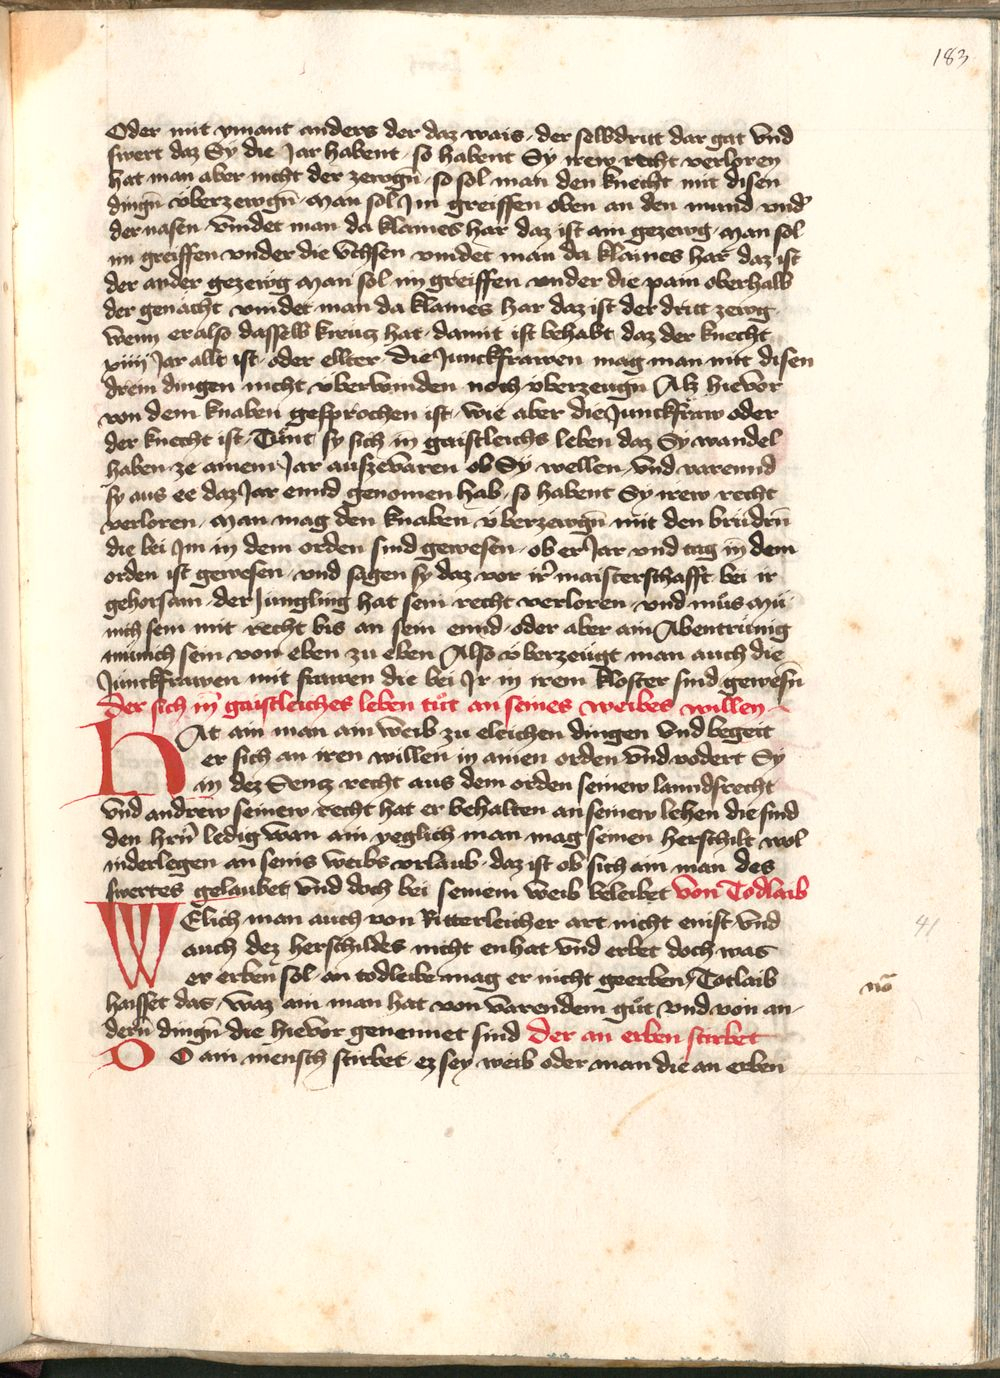 183
Oder mit ymant anders der daz wais · der selbdritt dar gat vnd
swert daz Sy die Jar habent · so habent Sy irew recht verloren
hat man aber nicht der zewgn̄ · so sol man den knecht mit disen
dingn̄ v̈berzewgn̄ · Man sol Jm greiffen oben an den mund vnd
der nasen · vindet man da klaines har daz ist ain gezewg · Man sol
im greiffen vnder die v̈chsen vindet man da klaines har daz ist
der ander gezewg Man sol im greiffen vnder die pain oberhalb
der gemächt vindet man da klaines har daz ist der dritt zewg
wenn er also dasselb kreucz hat · damit ist behabt daz der knecht
xiiij Jar allt ist · oder ellter · die Junckfrawen mag man mit disen
drein dingen nicht v̈berwinden noch v̈berzeugn Alz hievor
von dem knaben gesprochen ist · wie aber die Junckfraw oder
der knecht ist · Tu̇nt sy sich in gaistleichs leben daz Sy wandel
haben ze ainem Jar auszevaren ob Sy wellen · vnd varennd
sy aus ee daz Jar ennd genomen hab · so habent Sy irew recht
verloren · Man mag den knaben v̈berzewgn̄ mit den brüdrn̄
die bei Jm in dem orden sind gewesen · ob er Jar vnd tag in dem
orden ist gewesen · vnd sagen sy daz vor ir̄ maisterschafft bei ir
gehorsam · der Jüngling hat sein recht verloren · vnd mu̇s mü-
nich sein mit recht bis an sein ennd · oder aber ain Abentrünig
münich sein von eben zu eben Also v̈berzeügt man auch die
Junckfrawen mit frawen die bei Jr in irem kloster sind gewesn̄
der sich in gaistleiches leben tu̇t an seines weibes willen
HAt ain man ain weib zu eleichen dingen vnd begeit
er sich an iren willen in ainen orden vnd vodert Sy
in dez Sencz recht aus dem orden seinew lanndsrecht
vnd andrew seinew recht hat er behalten an seinew lehen die sind
den hrn̄ ledig wan ain yeglich man mag seinen herschilt wol
niderlegen an seins weibs vrlaub · daz ist ob sich ain man des
swertes gelaubet vnd doch bei seinem weib beleibet von Todlaib
WElich man auch von Ritterleicher art nicht enist vnd
auch dez herschildes nicht enhat vnd erbet doch was
er erben sol · an todleibe mag er nicht geerben / Totlaib
haisset das · waz ain man hat von varendem gu̇t vnd von an-
dern̄ dingn̄ die hievor genennet sind der an erben stirbet
SO ain mensch stirbet · ez sey weib oder man die an erben
41